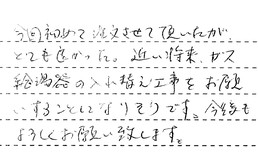 今回初めて注文させて頂いたが、
とても良かった。近い将来、ガス
給湯器の入れ替え工事をお願
いすることになりそうです。今後も
よろしくお願い致します。